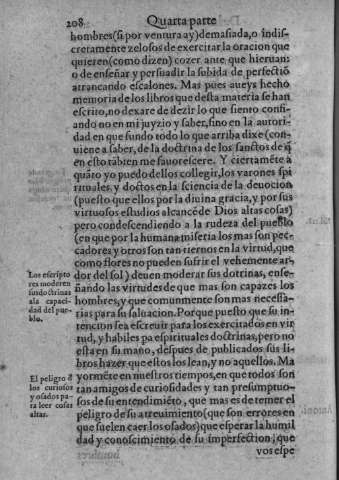 208
Quarta parte
hombres(si por ventura ay)demasiada,o indis-
cretamente zelosos de exercitar la oracion que
quieren(como dizen)cozer ante que hieruan:
o de enseñar y persuadir la subida de perfectiõ
arrancando escalones. Mas pues aueys hecho
memoria de los libros que desta materia se han
escrito,no dexare de dezir lo que siento confi-
ando no en mi juyzio y saber,sino en la autori-
dad en que fundo todo lo que arriba dixe(con-
uiene a saber,de la doctrina de los sanctos de q̃
en esto tãbien me fauorescere. Y ciertamẽte a
quãto yo puedo dellos collegir,los varones spi
rituales y doctos en la sciencia de la deuocion
(puesto que ellos por la diuina gracia, y por sus
virtuosos estudios alcancẽ de Dios altas cosas)
pero condescendiendo a la rudeza del pueblo
(en que por la humana miseria los mas son pec-
cadores y otros son tan tiernos en la virtud,que
como flores no pueden sufrir el vehemente ar-
dor del sol)deuen moderar sus dotrinas, ense-
ñando las virtudes de que mas son capazes los
hombres,y que comunmente son mas necessa-
rias para su saluacion.Porque puesto que su in-
tencion sea escreuir para los exercitados en vir
tud,y habiles pa espirituales doctrinas,pero no
esta en su mano,despues de publicados sus li-
bros hazer que estos los lean,y no aquellos. Ma
yormẽte en nuestros tiempos,en que todos son
tan amigos de curiosidades y tan presumptuo-
sos de su entendimiẽto, que mas es de temer el
peligro de su atreuimiento(que son errores en
que suelen caer los osados)que esperar la humil
dad y conoscimiento de su imperfection;que
vos espe
Los escripto
res moderen
sus doctrinas
ala capaci-
dad del pue-
blo.
El peligro d̃
los curiosos
y osados pa-
ra leer cosas
altas.